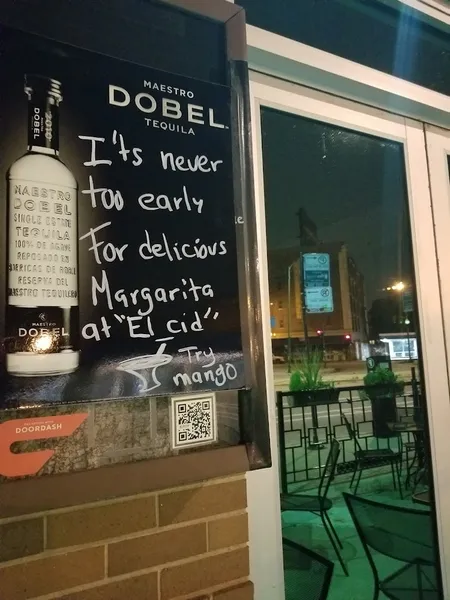 MAESTRO
DOBEL
TEQUILA
I'ts never
too early
For delicious
Margarita
at "El cid"
Try
mango
DOBEL
MAESTRO
DOBEL
SINGLE ESTATE
TEQUILA
100% DE AGAVE
REPOSADO EN
BARRICAS DE ROBLE
RESERVA DEL
MAESTRO TEQUILERO
MAESTRO
DOBEL
DOORDASH